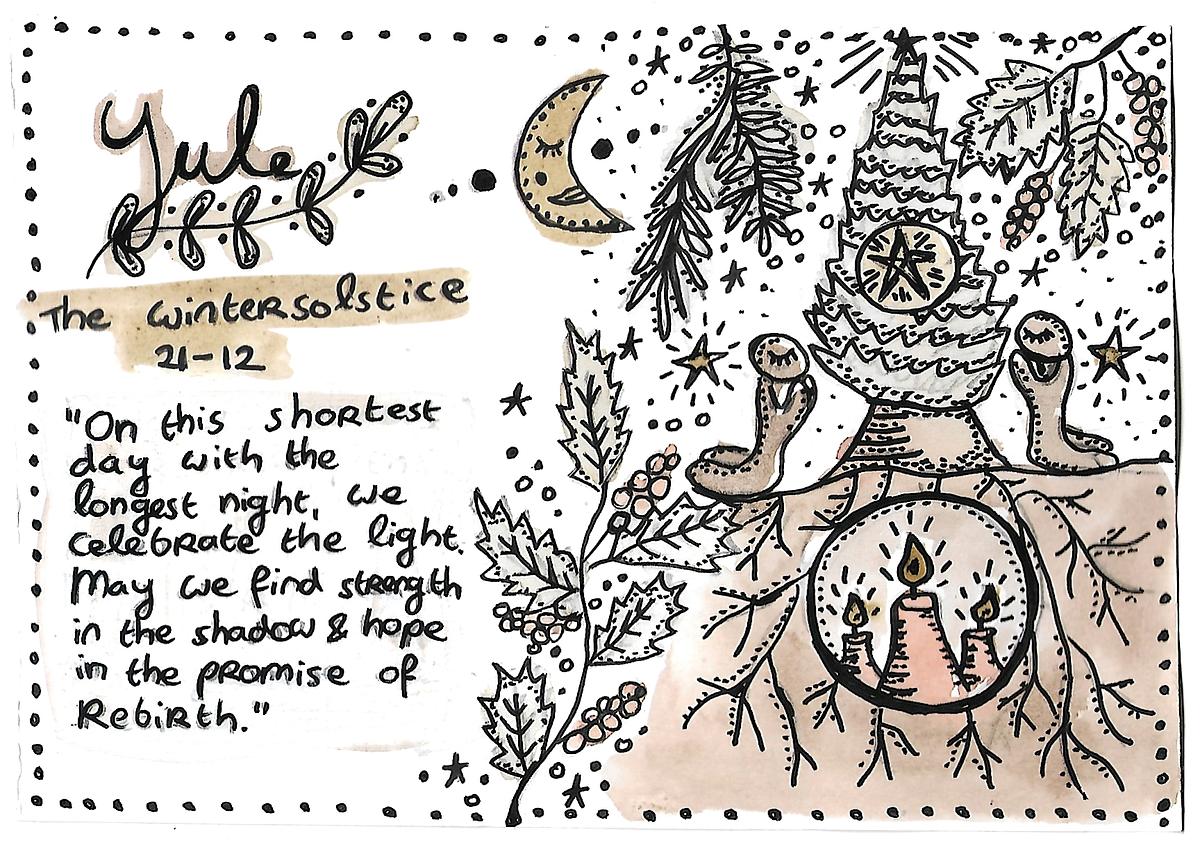 Yule
The wintersolstice
21-12
"On this shortest
day with the
longest night, we
celebrate the light.
May we find strength
in the shadow & hope
in the promise of
Rebirth."